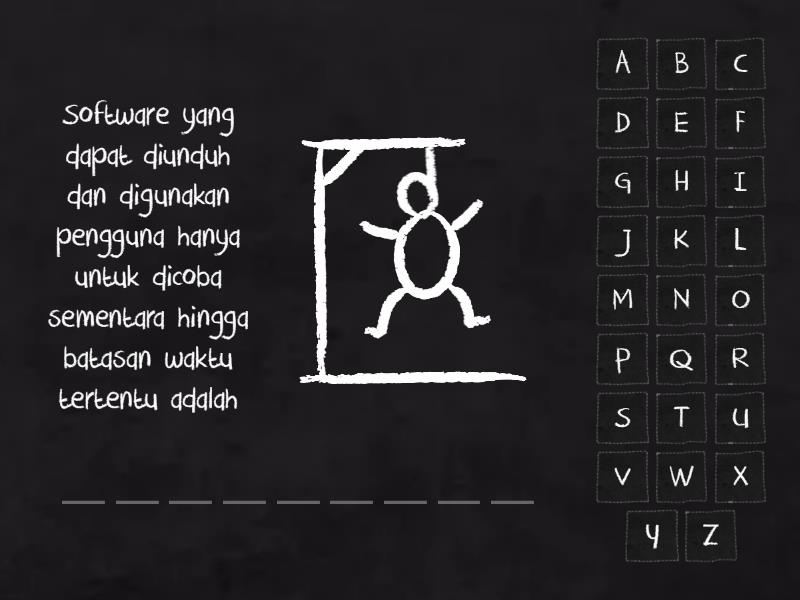 Software yang
dapat diunduh
dan digunakan
pengguna hanya
untuk dicoba
sementara hingga
batasan waktu
tertentu adalah
A B C
D E F
G H I
J K L
M N O
P Q R
S T U
V W X
Y Z